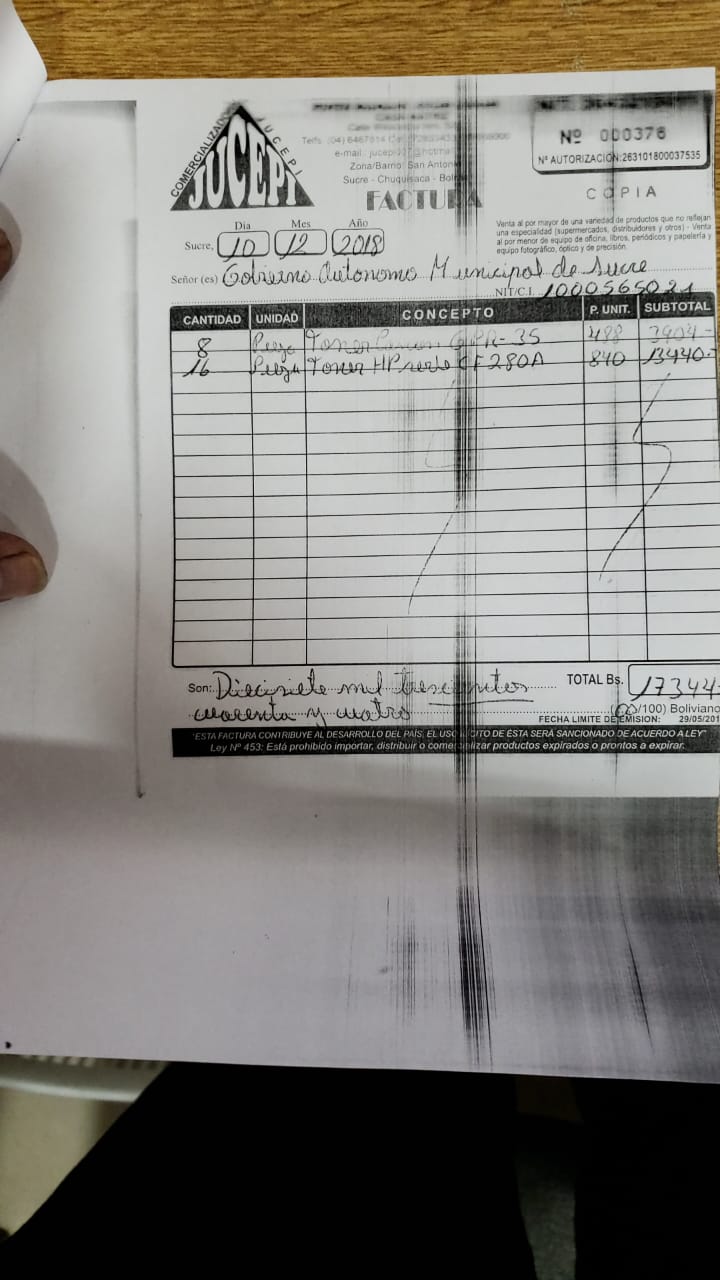 COMERCIALIZADORA JUCEPI
JUCEPI
Nº 000376
Nº AUTORIZACIÓN:263101800037535
Telfs. (04) 6467614
e-mail.: jucepi
Zona/Barrio: San Antonio
Sucre - Chuquisaca - Bolivia
FACTURA
COPIA
Venta al por mayor de una variedad de productos que no reflejan
una especialidad (supermercados, distribuidores y otros) - Venta
al por menor de equipo de oficina, libros, periódicos y papelería y
equipo fotográfico, óptico y de precisión.
Día Mes Año
Sucre, 10 12 2018
Señor (es) Gobierno Autonomo Municipal de Sucre
NIT/C.I. 1000565021
CANTIDAD UNIDAD CONCEPTO P. UNIT. SUBTOTAL
8 Pieza Toner Canon GPR-35 488 3904-
16 Pieza Toner HP CF280A 840 13440-
Son: Diecisiete mil trescientos TOTAL Bs. 17344-
cuarenta y cuatro 00/100) Boliviano
FECHA LIMITE DE EMISIÓN: 29/05/201
"ESTA FACTURA CONTRIBUYE AL DESARROLLO DEL PAÍS, EL USO ILÍCITO DE ÉSTA SERÁ SANCIONADO DE ACUERDO A LEY"
Ley Nº 453: Está prohibido importar, distribuir o comercializar productos expirados o prontos a expirar.